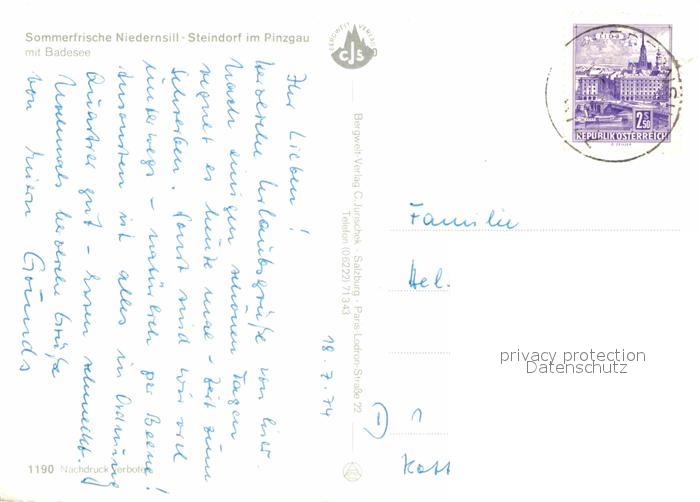 Sommerfrische Niedernsill - Steindorf im Pinzgau
mit Badesee
BERGWELT VERLAG
CJS
WIEN
2 S 50
REPUBLIK ÖSTERREICH
Bergwelt-Verlag C. Jurischek · Salzburg · Paris-Lodron-Straße 22
Telefon (06222) 71343
18.7.74
Ihr Lieben!
herzliche Urlaubsgrüße von hier.
Nach einigen schönen Tagen
regnet es heute mal - Zeit zum
Schreiben. Sonst sind wir viel
unterwegs - natürlich per Beene!
Ansonsten ist alles in Ordnung
Quartier gut - Essen schmeckt.
Nochmals herzliche Grüße
von
Familie
Hel.
1
Kass
privacy protection
Datenschutz
1190 Nachdruck verboten